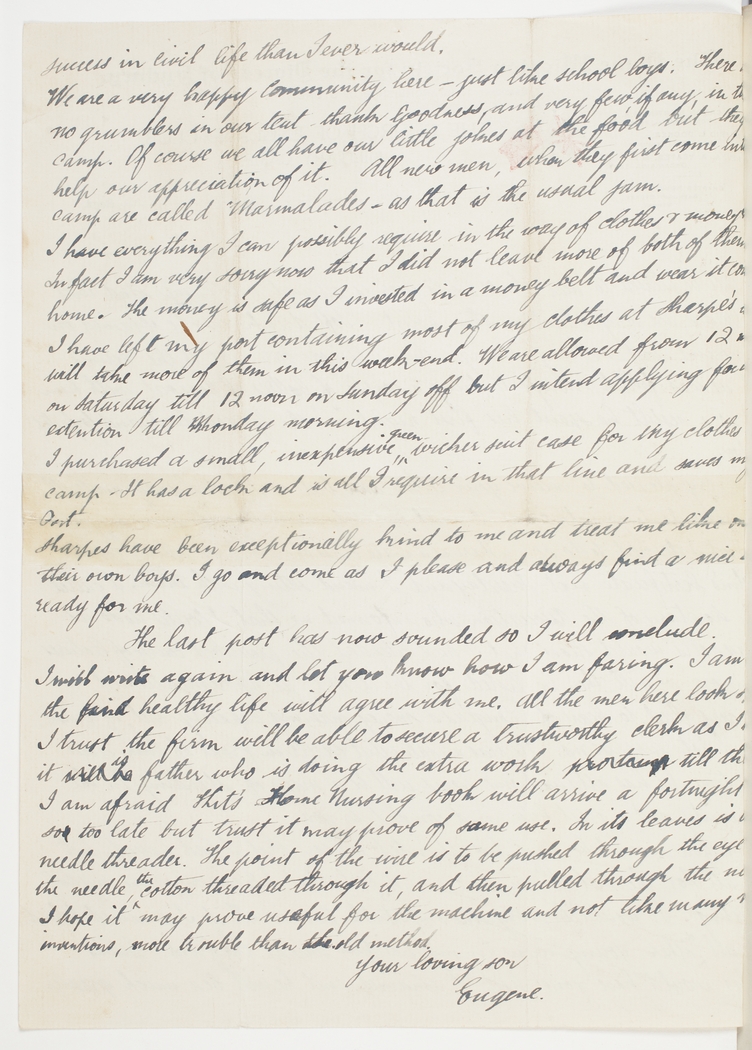 success in civil life than I ever would.
We are a very happy community here - just like school boys. There
no grumblers in our tent thank Goodness, and very few, if any, in th
camp. Of course we all have our little jokes at the food but they
help our appreciation of it. All new men, when they first come into
camp are called "Marmalades" - as that is the usual jam.
I have everything I can possibly require in the way of clothes & money
In fact I am very sorry now that I did not leave more of both of them
home. The money is safe as I invested in a money belt and wear it
I have left my port containing most of my clothes at Sharpe's
will take more of them in this week-end. We are allowed from 12
on Saturday till 12 noon on Sunday off but I intend applying for
extention till Monday morning.
I purchased a small, inexpensive, green wicker suit case for my clothes
camp - It has a lock and is all I require in that line and saves my
Port.
Sharpes have been exceptionally kind to me and treat me like
their own boys. I go and come as I please and always find a nice
ready for me.
The last post has now sounded so I will conclude.
I will write again and let you know how I am faring. I am
the find healthy life will agree with me. All the men here look
I trust the firm will be able to secure a trustworthy clerk as I
it is father who is doing the extra work pro temp till th
I am afraid Kit's Home Nursing book will arrive a fortnight
too late but trust it may prove of some use. In its leaves is
needle threader. The point of the wire is to be pushed through the eye
the needle, the cotton threaded through it, and then pulled through the
I hope it may prove useful for the machine and not like many
inventions, more trouble than the old method.
Your loving son
Eugene.